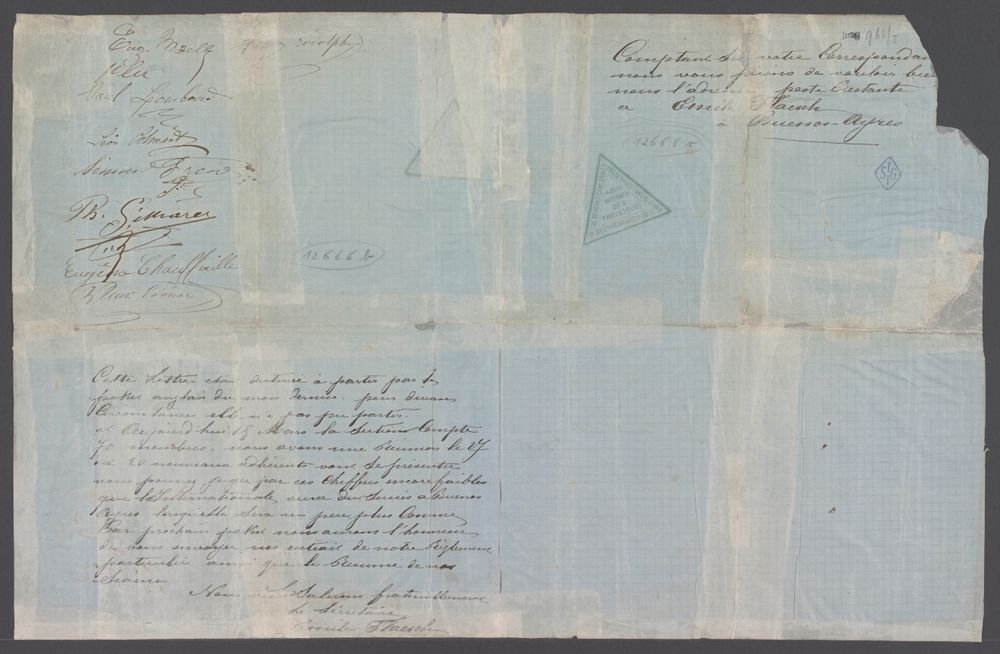 Eug. 
Paul Lombard
Léon
Simon
Ph.
Eugène Chauffivillé
Comptant sur votre Correspondan
nous vous prions de vouloir bi
nous l'adresser poste Restante
à Emile Flaesch
à Buenos-Ayres
966/2
12666 b
12666 b
DES
S G
Cette Lettre etais destinée à partir par le
paket anglais du mois dernier. pour diverses
Circonstances elle n'a pas pu partir.
et Aujourd'hui 15 Mars la Section Compte
70 membres, nous avons une Reunion le 17
où 20 nouveaux adhérents vont se présenter
vous pouvez juger par ces Cheffres encore faibles
que l'Internationale aura du Succès à Buenos
Ayres lorsquelle sera un peu plus Connue
Par prochain paket nous aurons l'honneur
de vous envoyer un extrait de notre Règlement
particulier ainsi que le Resume de nos
Seances
Nous vous Saluons fraternellement
Le Sécretaire
Emile Flaesch